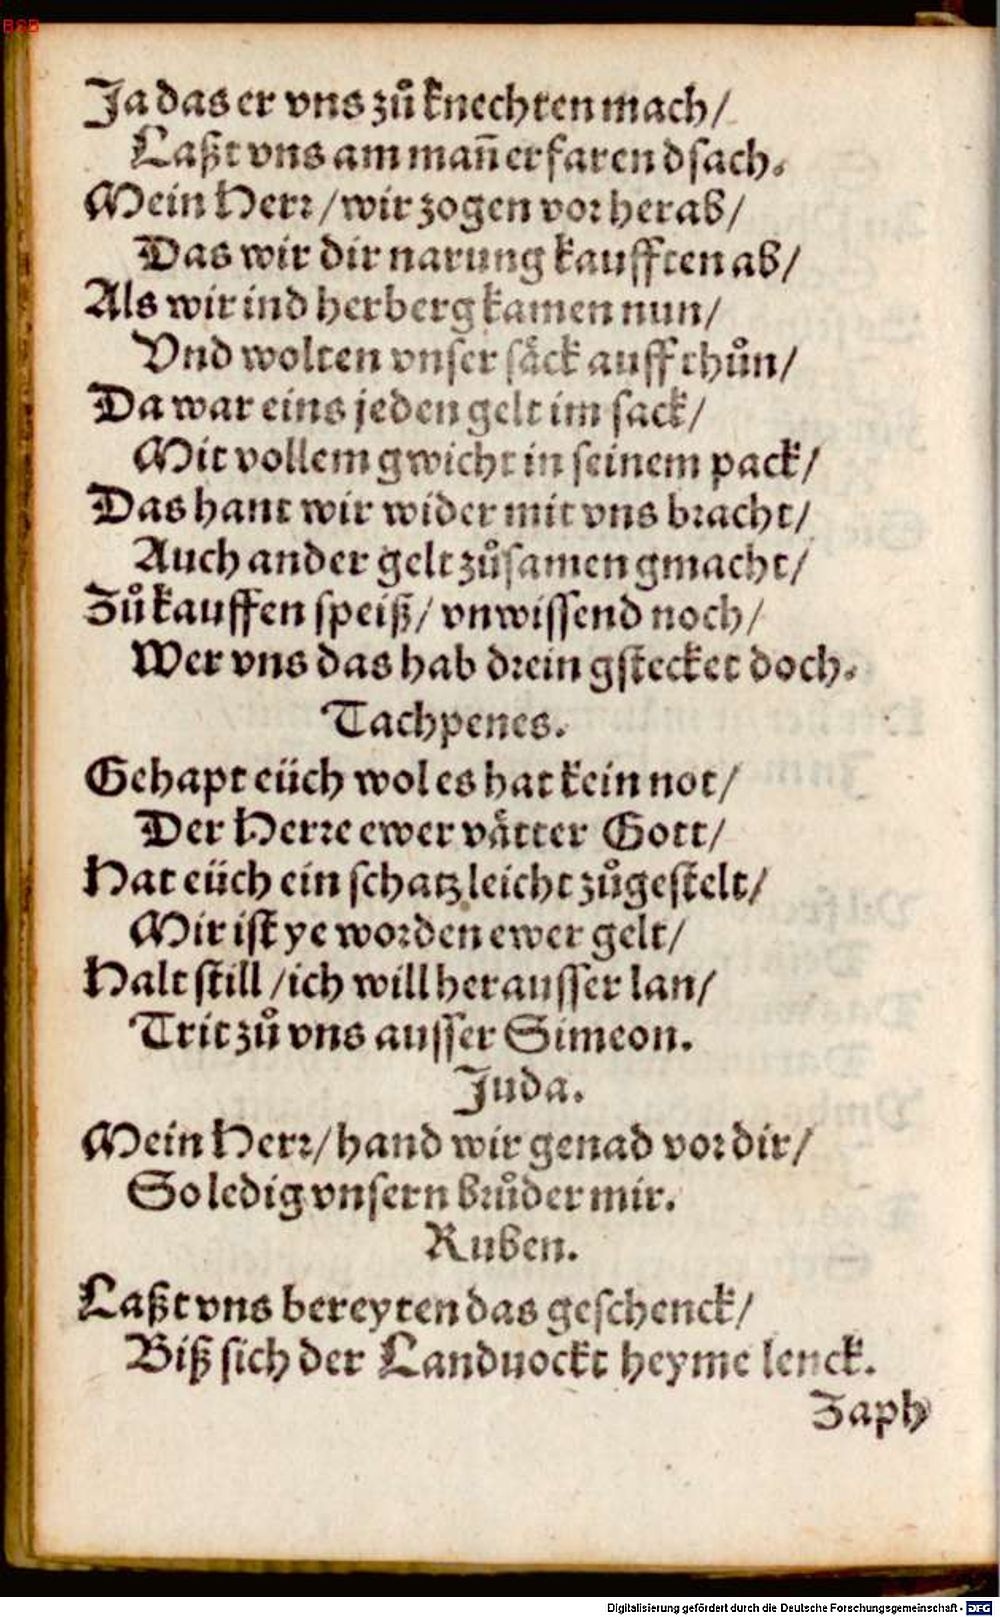 BSB
Ja das er vns zuͦ knechten mach /
Laßt vns am mañ erfaren d sach.
Mein Herr / wir zogen vor herab /
Das wir dir narung kaufften ab /
Als wir ind herberg kamen nun /
Vnd wolten vnser saͤck auff thuͦn /
Da war eins jeden gelt im sack /
Mit vollem gwicht in seinem pack /
Das hant wir wider mit vns bracht /
Auch ander gelt zuͦsamen gmacht /
Zuͦ kauffen speiß / vnwissend noch /
Wer vns das hab drein gstecket doch.
Tachpenes.
Gehapt eüch wol es hat kein not /
Der Herre ewer vaͤtter Gott /
Hat eüch ein schatz leicht zuͦgestelt /
Mir ist ye worden ewer gelt /
Halt still / ich will herausser lan /
Trit zuͦ vns ausser Simeon.
Juda.
Mein Herr / hand wir genad vor dir /
So ledig vnsern bruͦder mir.
Ruben.
Laßt vns bereyten das geschenck /
Biß sich der Landuockt heyme lenck.
Zaph
Digitalisierung gefördert durch die Deutsche Forschungsgemeinschaft - DFG